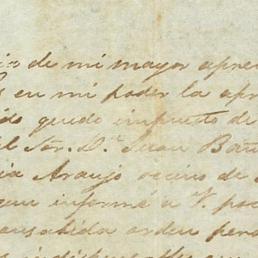 de mi mayor apre
en mi poder la apr
ido quedo impuesto de
el Sor. Dn. Juan Bau
ia Araujo vecino de
informé a V. por
orden